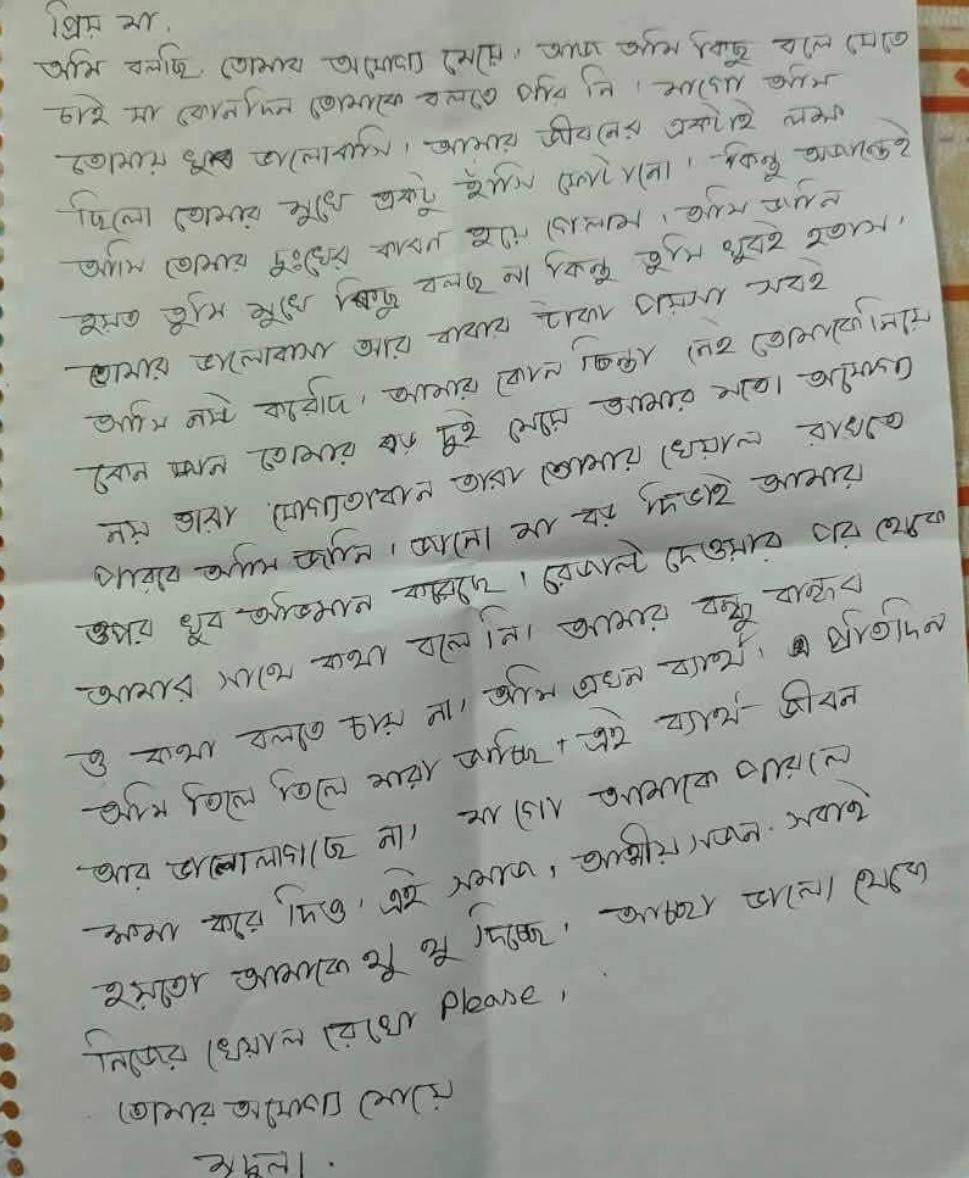 প্রিয় মা,
আমি বলছি, তোমার অযোগ্য মেয়ে। আজ আমি কিছু বলে যেতে
চাই মা কোনদিন তোমাকে বলতে পারি নি। মাগো আমি
তোমায় খুব ভালোবাসি। আমার জীবনের একটাই লক্ষ্য
ছিলো তোমার মুখে একটু হাঁসি ফোটানো। কিন্তু অজান্তেই
আমি তোমার দুঃখের কারন হয়ে গেলাম। আমি জানি
হয়ত তুমি মুখে কিছু বলছ না কিন্তু তুমি খুবই হতাস।
তোমার ভালোবাসা আর বাবার টাকা পয়সা সবই
আমি নষ্ট করেছি। আমার কোন চিন্তা নেই তোমাকে নিয়ে
কেন তোমার বড় দুই মেয়ে আমার মতো অযোগ্য
নয় তারা যোগ্যতাবান তারা তোমায় খেয়াল রাখতে
পারবে আমি জানি। জানো মা বড় দিভাই আমার
ওপর খুব অভিমান করেছে। রেজাল্ট দেওয়ার পর থেকে
আমার সাথে কথা বলে নি। আমার বন্ধু বান্ধব
ও কথা বলতে চায় না। আমি এখন ব্যার্থ। প্রতিদিন
আমি তিলে তিলে মারা জাচ্ছি। এই ব্যার্থ জীবন
আর ভালোলাগছে না। মা গো আমাকে পারলে
ক্ষমা করে দিও। এই সমাজ, আত্মীয় সজন. সবাই
হয়তো আমাকে থু থু দিচ্ছে। আচ্ছা ভালো থেকো
নিজের খেয়াল রেখো Please,
তোমার অযোগ্য মেয়ে